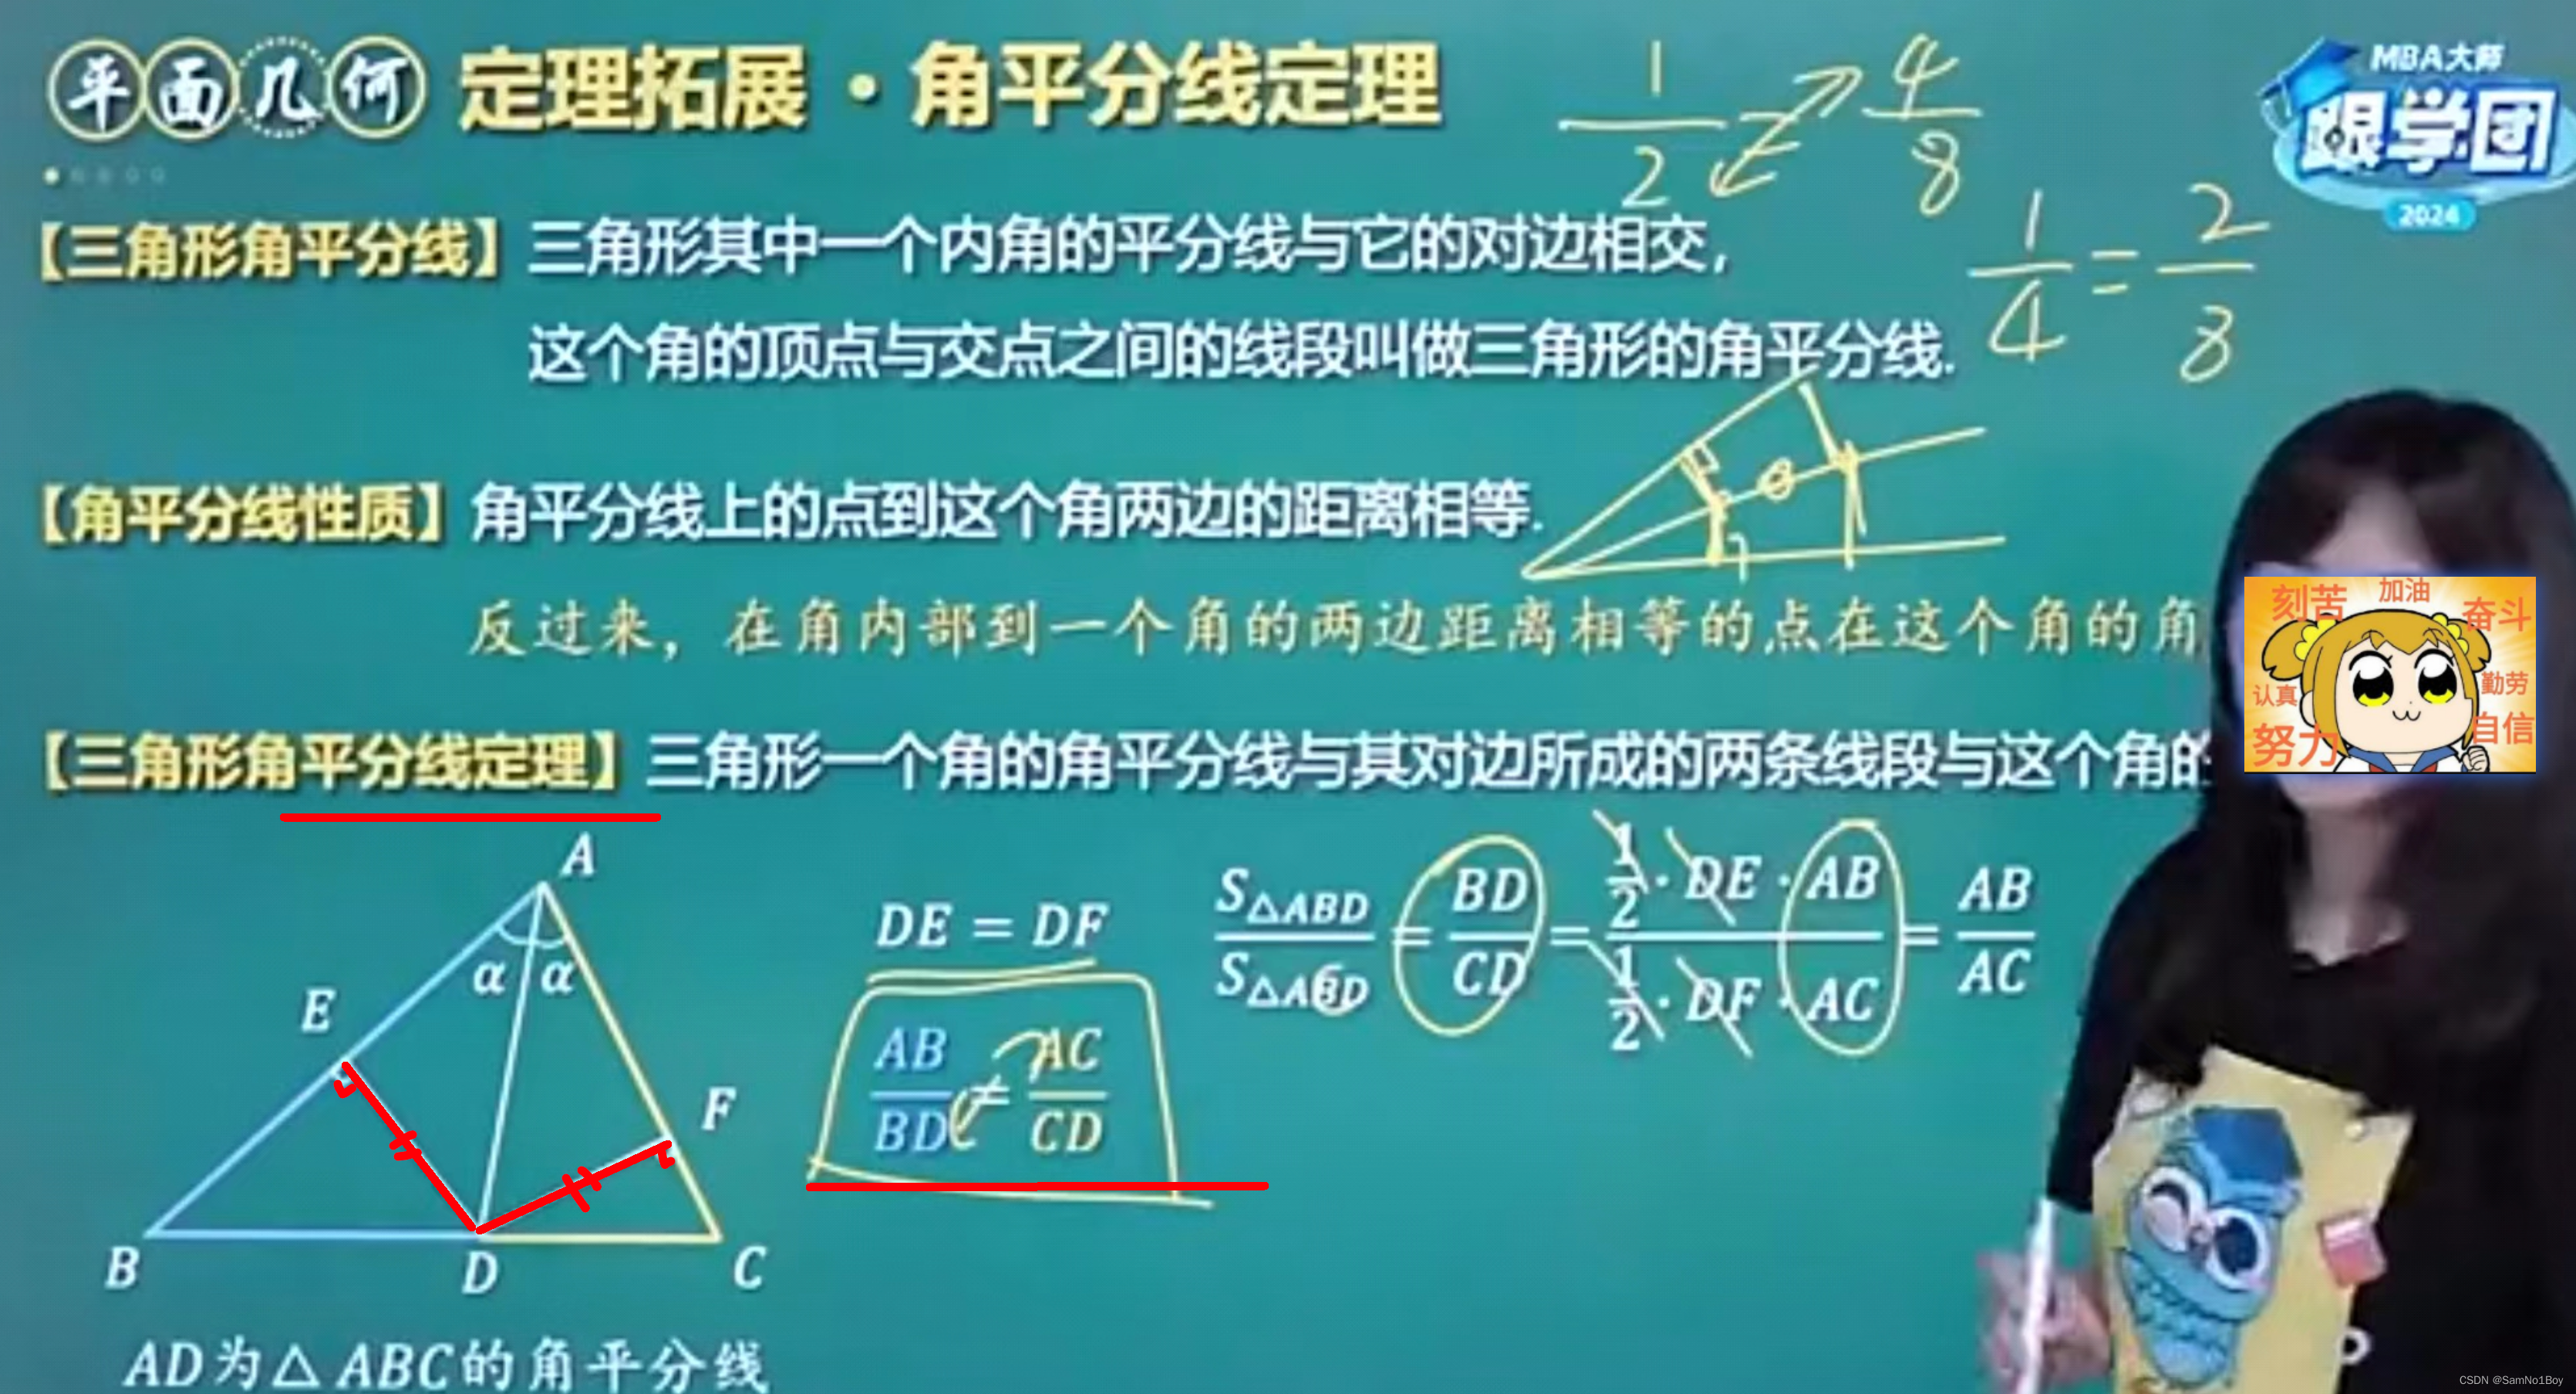 平面几何 定理拓展·角平分线定理
1/2 = 4/8
MBA大师
跟学团
2024
【三角形角平分线】三角形其中一个内角的平分线与它的对边相交,
1/4 = 2/8
这个角的顶点与交点之间的线段叫做三角形的角平分线.
【角平分线性质】角平分线上的点到这个角两边的距离相等.
反过来，在角内部到一个角的两边距离相等的点在这个角的角
刻苦 加油 奋斗
认真 勤劳
努力 自信
【三角形角平分线定理】三角形一个角的角平分线与其对边所成的两条线段与这个角的
A
α α
E
F
B D C
DE = DF
AB/BD = AC/CD
S△ABD/S△ACD = BD/CD = (1/2·DE·AB)/(1/2·DF·AC) = AB/AC
AD为△ABC的角平分线
CSDN @SamNo1Boy